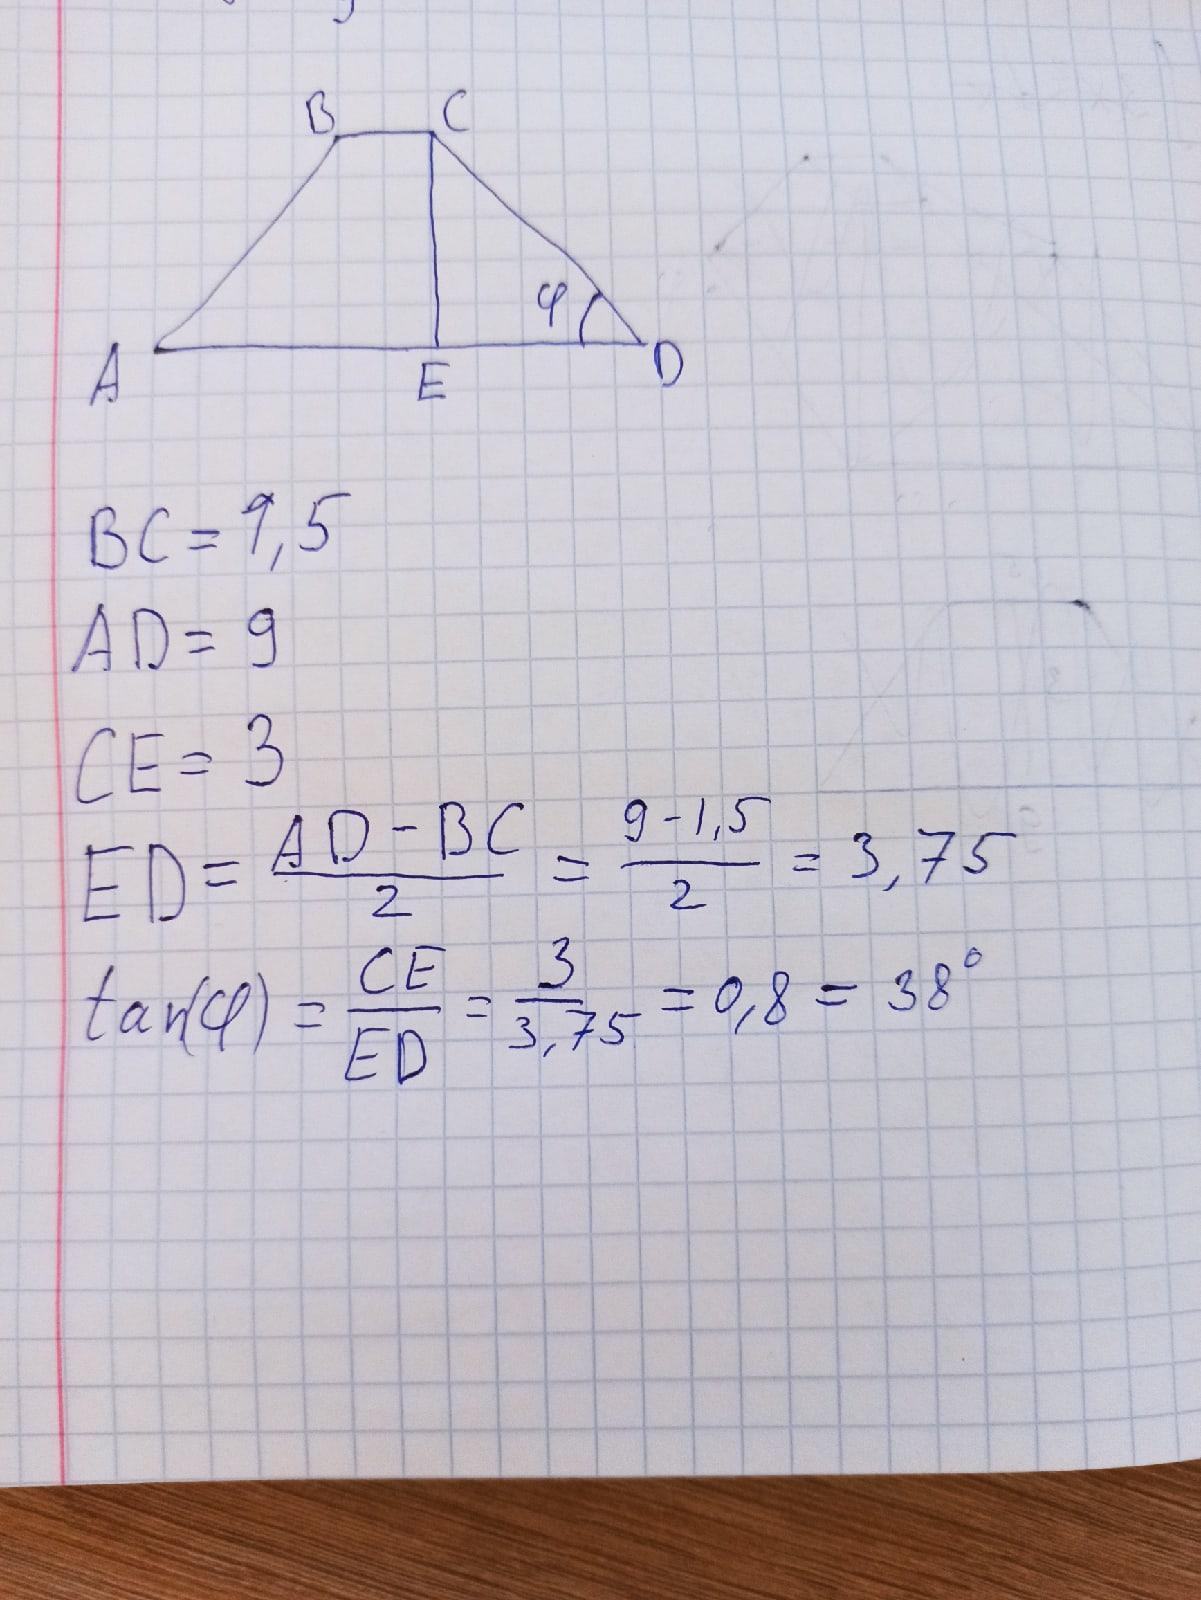 B C
φ
A E D
BC = 1,5
AD = 9
CE = 3
ED = AD - BC / 2 = 9 - 1,5 / 2 = 3,75
tan(φ) = CE / ED = 3 / 3,75 = 0,8 = 38°